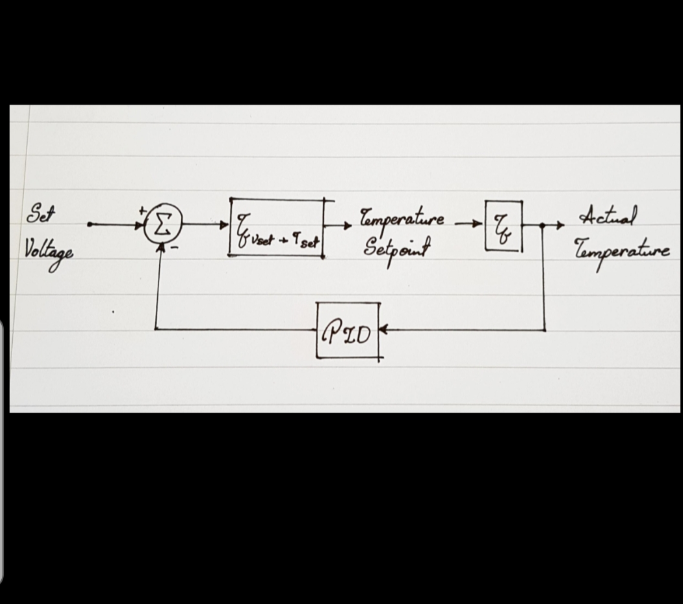 Set
Voltage
+
Σ
-
Vset → Tset
Temperature
Setpoint
Actual
Temperature
PID